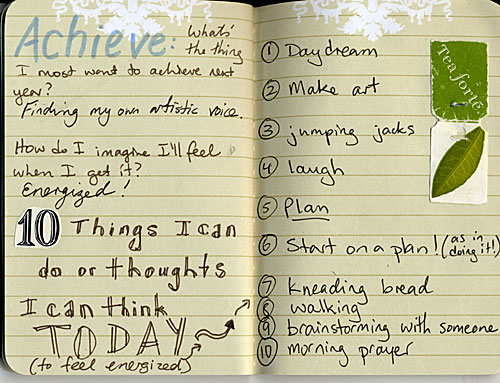 Achieve: Whats'
the thing
I most want to achieve next
year?
Finding my own artistic voice.
How do I imagine I'll feel
when I get it?
Energized!
10 Things I can
do or thoughts
I can think
TODAY
(to feel energized)
1 Daydream
2 Make art
3 jumping jacks
4 laugh
5 Plan
6 Start on a plan! (as in
doing it!)
7 kneading bread
8 walking
9 brainstorming with someone
10 morning prayer
Tea forté